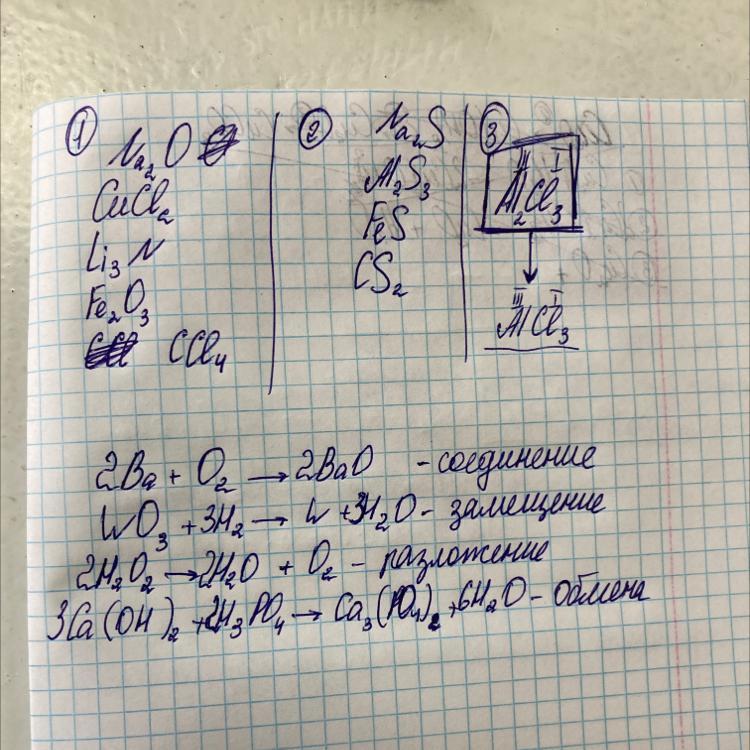 ①
Na₂O
CuCl₂
Li₃N
Fe₂O₃
CCl₄
②
Na₂S
Al₂S₃
FeS
CS₂
③
III I
Al₂Cl₃
III I
AlCl₃
2Ba + O₂ → 2BaO - соединение
WO₃ + 3H₂ → W + 3H₂O - замещение
2H₂O₂ → 2H₂O + O₂ - разложение
3Ca(OH)₂ + 2H₃PO₄ → Ca₃(PO₄)₂ + 6H₂O - Обмена